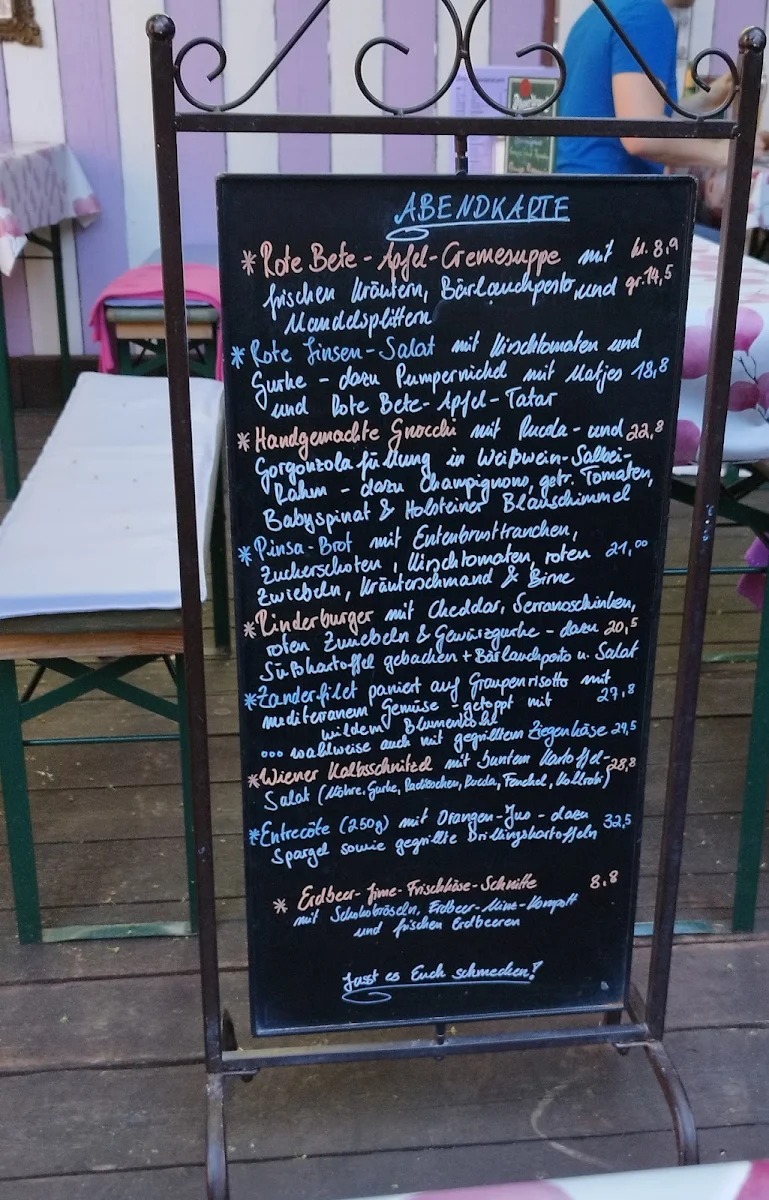 ABENDKARTE
* Rote Bete - Apfel - Cremesuppe mit kl. 8,9
frischen Kräutern, Bärlauchpesto und gr. 14,5
Mandelsplittern
* Rote Linsen - Salat mit Kirschtomaten und
Gurke - dazu Pumpernickel mit Matjes 18,8
und Rote Bete - Apfel - Tatar
* Handgemachte Gnocchi mit Rucola - und 22,8
Gorgonzolafüllung in Weißwein - Salbei -
Rahm - dazu Champignons, getr. Tomaten,
Babyspinat & Holsteiner Blauschimmel
* Pinsa - Brot mit Entenbrusttranchen,
Zuckerschoten, Kirschtomaten, roten 21,00
Zwiebeln, Kräuterschmand & Birne
* Rinderburger mit Cheddar, Serranoschinken,
roten Zwiebeln & Gewürzgurke - dazu 20,5
Süßkartoffel gebacken + Bärlauchpesto u. Salat
* Zanderfilet paniert auf Graupenrisotto mit
mediteranem Gemüse - getoppt mit 27,8
wildem Blumenkohl
... wahlweise auch mit gegrilltem Ziegenkäse 24,5
* Wiener Kalbsschnitzel mit buntem Kartoffel - 28,8
Salat (Möhre, Gurke, Radieschen, Rucola, Fenchel, Kohlrabi)
* Entrecôte (250g) mit Orangen - Jus - dazu 32,5
Spargel sowie gegrillte Drillingskartoffeln
* Erdbeer - Lime - Frischkäse - Schnitte 8,8
mit Schokobröseln, Erdbeer - Minz - Kompott
und frischen Erdbeeren
Lasst es Euch schmecken!